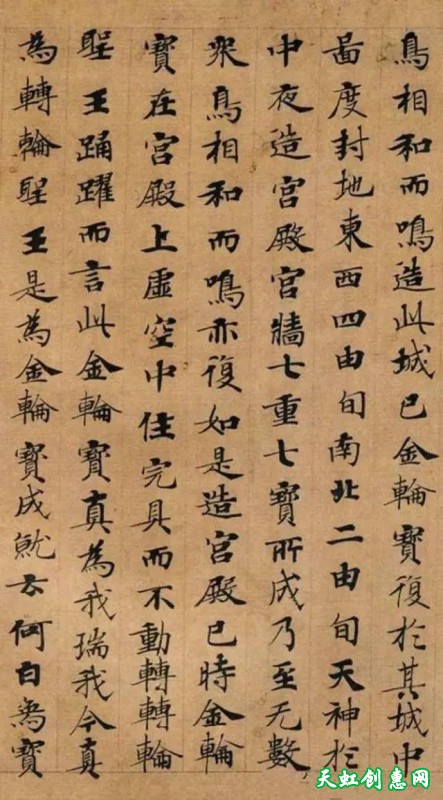 鳥相和而鳴造此城已金輪寶復於其城中
啚度封地東西四由旬南北二由旬天神於
中夜造宮殿宮牆七重七寶所成乃至无數
衆鳥相和而鳴亦復如是造宮殿已時金輪
寶在宮殿上虛空中住完具而不動轉轉輪
聖王踊躍而言此金輪寶真為我瑞我今真
為轉輪聖王是為金輪寶成就云何白為寶
天虹创惠网